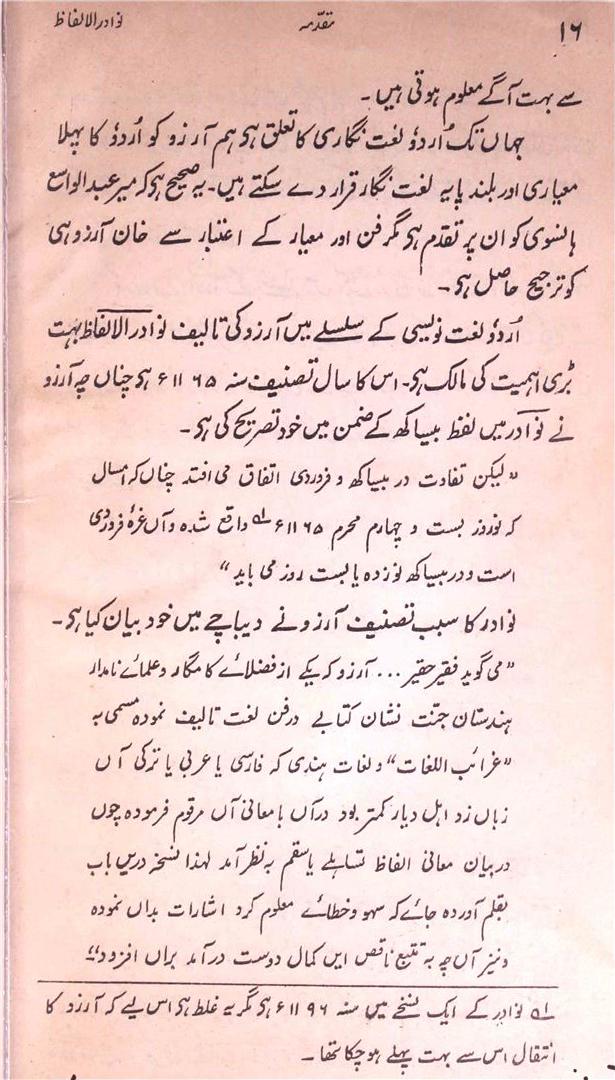 ۱۶ مقدّمہ نوادر الالفاظ
سے بہت آگے معلوم ہوتی ہیں۔
جہاں تک اُردوٗ لغت نگاری کا تعلق ہی ہم آرزو کو اُردوٗ کا پہلا
معیاری اور بلند پایہ لغت نگار قرار دے سکتے ہیں۔ یہ صحیح ہی کہ میر عبدالواسع
ہانسوی کو ان پر تقدم ہی مگر فن اور معیار کے اعتبار سے خان آرزو ہی
کو ترجیح حاصل ہی۔
اُردوٗ لغت نویسی کے سلسلے میں آرزو کی تالیف نوادر الالفاظ بہت
بڑی اہمیت کی مالک ہی۔ اس کا سال تصنیف سنہ ۱۱۶۵ء ہی چناں چہ آرزو
نے نوادر میں لفظ بیساکھ کے ضمن میں خود تصریح کی ہی۔
"لیکن تفاوت در بیساکھ و فروردی اتفاق می افتد چناں کہ امسال
کہ نوروز بست و چہارم محرم ۱۱۶۵ء لہ واقع شدہ و آں غرۂ فروردی
است و در بیساکھ نوزدہ یا بست روز می باید"
نوادر کا سبب تصنیف آرزو نے دیباچے میں خود بیان کیا ہی۔
"می گوید فقیر حقیر ... آرزو کہ یکے از فضلائے کامگار و علمائے نامدار
ہندستان جنّت نشان کتابے در فن لغت تالیف نمودہ مسمی بہ
"غرائب اللغات" و لغات ہندی کہ فارسی یا عربی یا ترکی آں
زباں زد اہل دیار کمتر بود در آں با معانی آں مرقوم فرمودہ چوں
در بیان معانی الفاظ تساہلے یا سقم بہ نظر آمد لہذا نسخہ دریں باب
بقلم آوردہ جائے کہ سہو و خطائے معلوم کرد اشارات بداں نمودہ
و نیز آں چہ بہ تتبع ناقص ایں کمال دوست در آمد براں افزود"
لہ نوادر کے ایک نسخے میں سنہ ۱۱۹۶ء ہی مگر یہ غلط ہی اس لیے کہ آرزو کا
انتقال اس سے بہت پہلے ہو چکا تھا۔